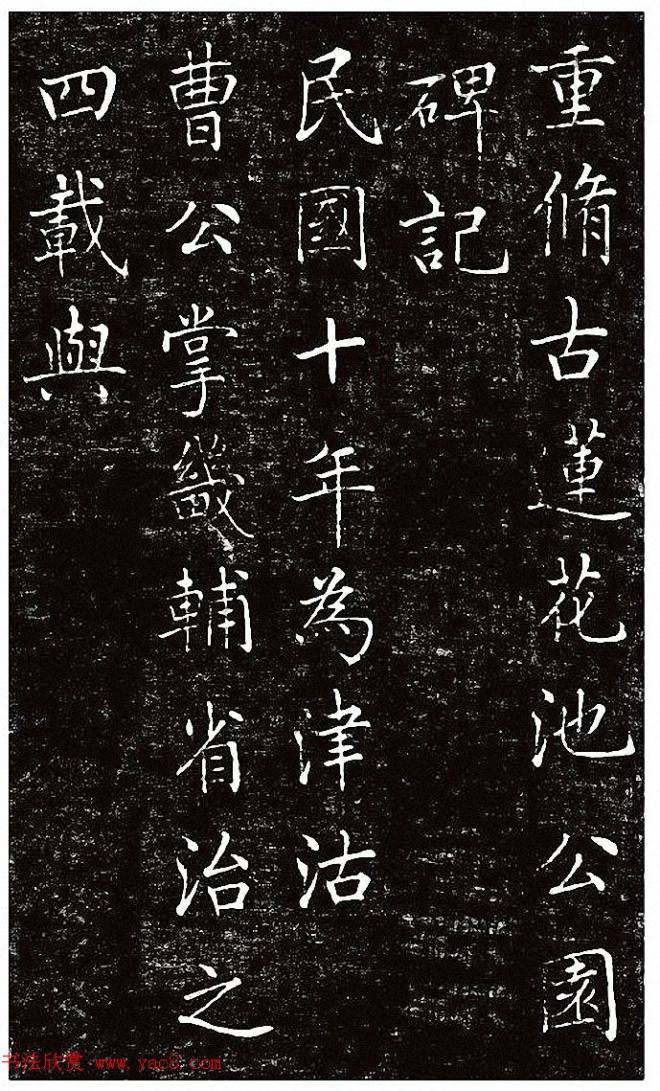 重脩古蓮花池公園
碑記
民國十年為津沽
曹公掌畿輔省治之
四載與
书法欣赏 www.yac8.com